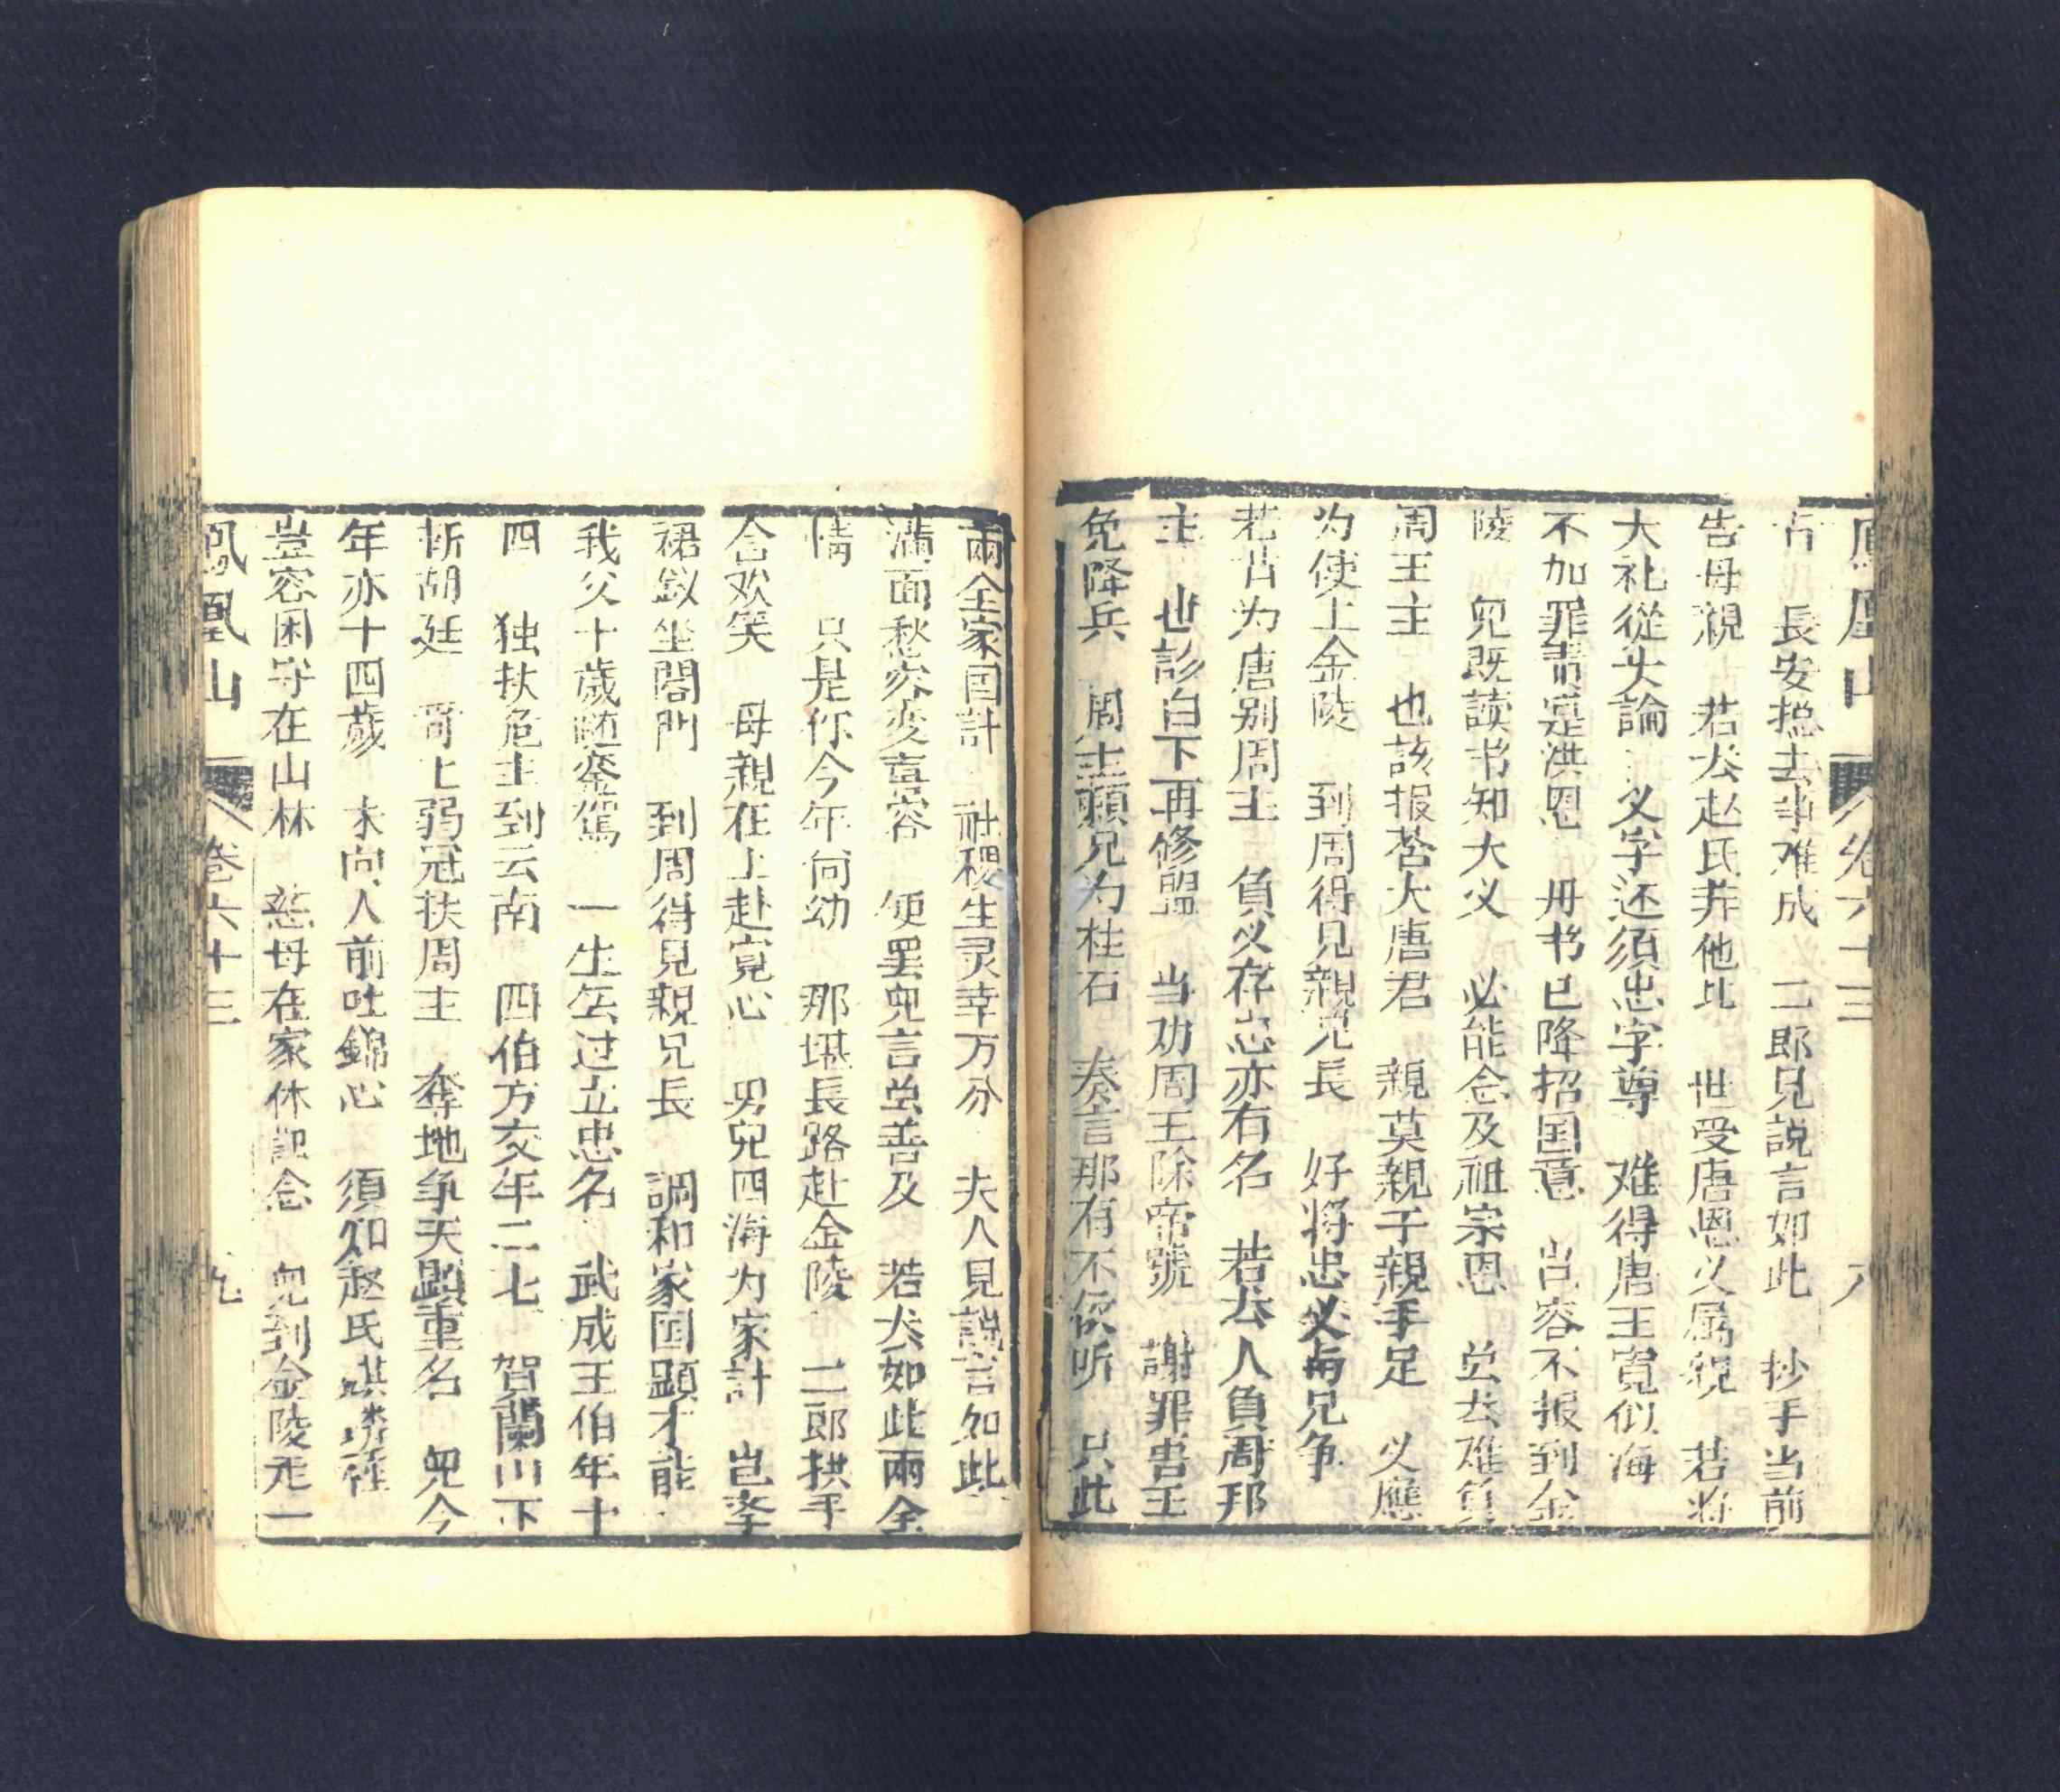 鳳凰山 卷六十三 八
古 長安搃去事难成 二郎兄説言如此 抄手当前
告母親 若去赵氏弃他比 世受唐恩义属親 若将
大礼從头論 义字还須忠字尊 难得唐王寬似海
不加罪責寔洪恩 丹书已降招国意 岂容不报到金
陵 兒既读书知大义 必能念及祖宗恩 总去难負
周王主 也該报荅大唐君 親莫親于親手足 义應
为使上金陵 到周得见親兄長 好将忠义与兄争
若昔为唐别周主 負义存忠亦有名 若去人負周邦
主 也診白下再修盟 当劝周王除帝號 謝罪書王
免降兵 周主頼兄为柱石 奏言那有不依听 只此
兩全家国計 社稷生灵幸万分 夫人見説言如此
滿面愁容变喜容 便罢兒言总善及 若去如此兩全
情 只是你今年尚幼 那堪長路赴金陵 二郎拱手
含欢笑 母親在上赴寬心 男兒四海为家計 岂孝
裙釵坐閤門 到周得見親兄長 調和家国顕才能
我父十歲随鑾駕 一生忠过立忠名 武成王伯年十
四 独扶危主到云南 四伯方交年二七 賀蘭山下
斬胡廷 哥上弱冠扶周主 奪地争天顕重名 兒今
年亦十四歲 未向人前吐錦心 須知赵氏祺璘種
豈容困守在山林 慈母在家休記念 兒到金陵走一
鳳凰山 卷六十三 九